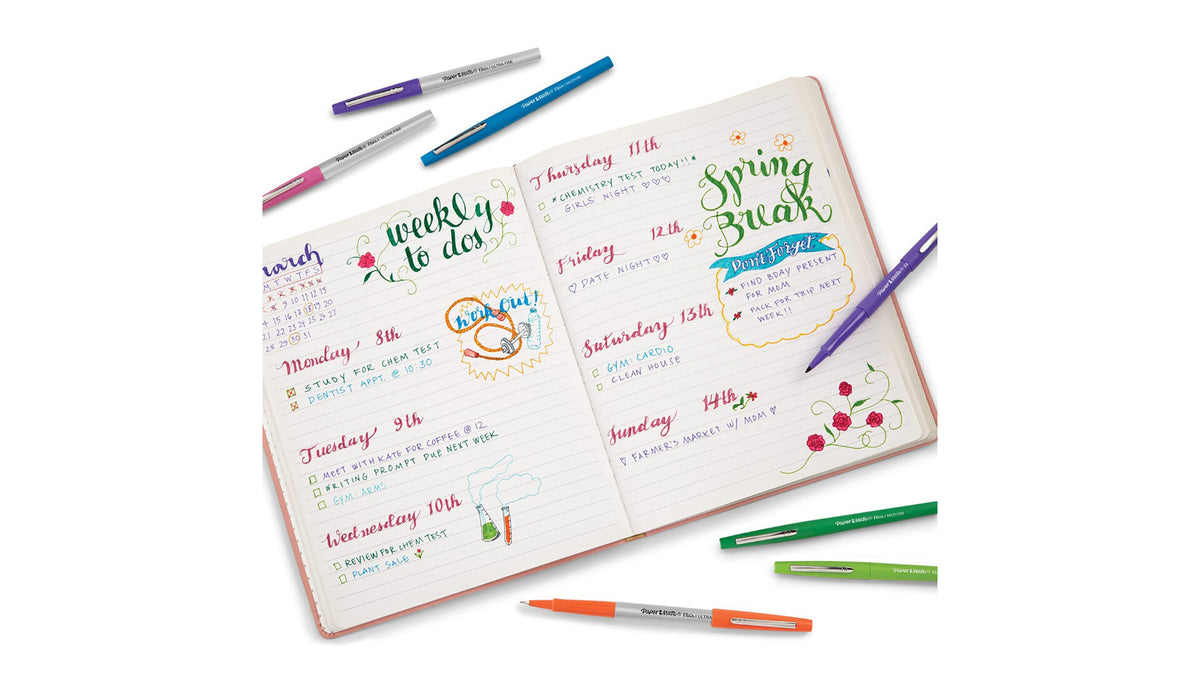 Paper Mate® Flair ULTRA FINE
Paper Mate® Flair MEDIUM
Paper Mate® Flair ULTRA FINE
March
M T W T F S
9 10 11 12 13
14 15 16 17 18 19 20
21 22 23 24 25 26 27
28 29 30 31
weekly
to dos
work out!
Monday 8th
STUDY FOR CHEM TEST
DENTIST APPT. @ 10:30
Tuesday 9th
MEET WITH KATE FOR COFFEE @ 12
WRITING PROMPT DUE NEXT WEEK
GYM: ARMS
Wednesday 10th
REVIEW FOR CHEM TEST
PLANT SALE
Thursday 11th
*CHEMISTRY TEST TODAY!!*
GIRLS' NIGHT ♡♡♡
Friday 12th
♡ DATE NIGHT ♡♡
Saturday 13th
GYM: CARDIO
CLEAN HOUSE
Sunday 14th
♡ FARMER'S MARKET W/ MOM ♡
Spring
Break
Don't Forget
FIND BDAY PRESENT
FOR MOM
PACK FOR TRIP NEXT
WEEK!!
Paper Mate® Flair
Paper Mate® Flair MEDIUM
Paper Mate® Flair
Paper Mate® Flair ULTRA